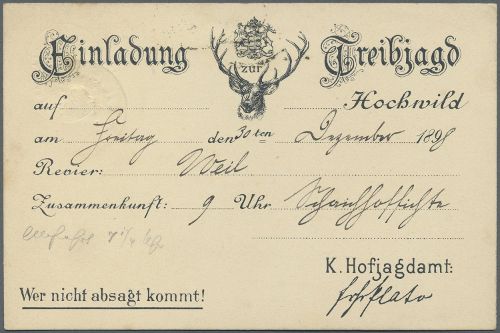 Einladung zur Treibjagd
auf Hochwild
am Freitag den 30ten Dezember 1898
Revier: Weil
Zusammenkunft: 9 Uhr Schaichhoffichte
K. Hofjagdamt:
Plato
Wer nicht absagt kommt!